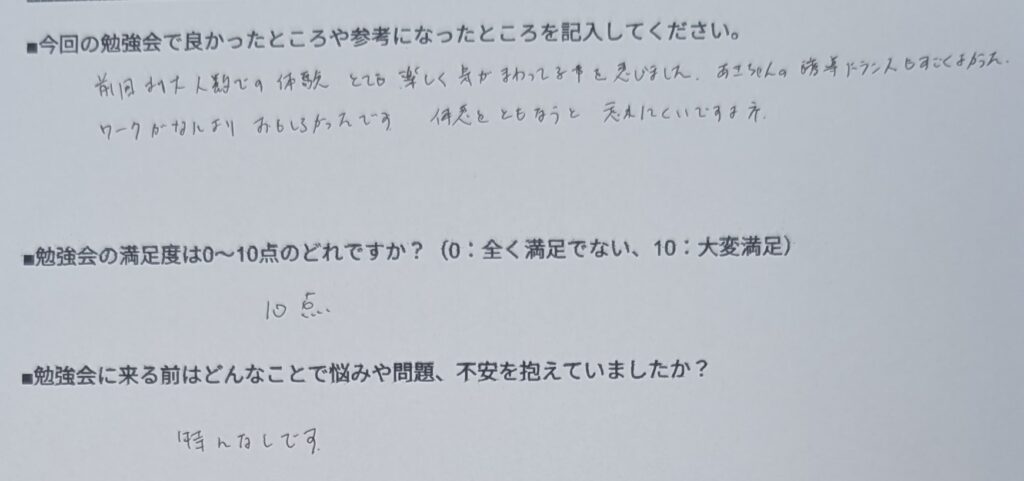 ■今回の勉強会で良かったところや参考になったところを記入してください。
前回 大人数での体験 とても 楽しく 気がまわってる事を感じました。あさちゃんの誘導トランスもすごくよかった。
ワークがなにより おもしろかったです 体感をともなうと 忘れにくいですよネ.
■勉強会の満足度は0〜10点のどれですか？（0：全く満足でない、10：大変満足）
10点
■勉強会に来る前はどんなことで悩みや問題、不安を抱えていましたか？
特になしです.